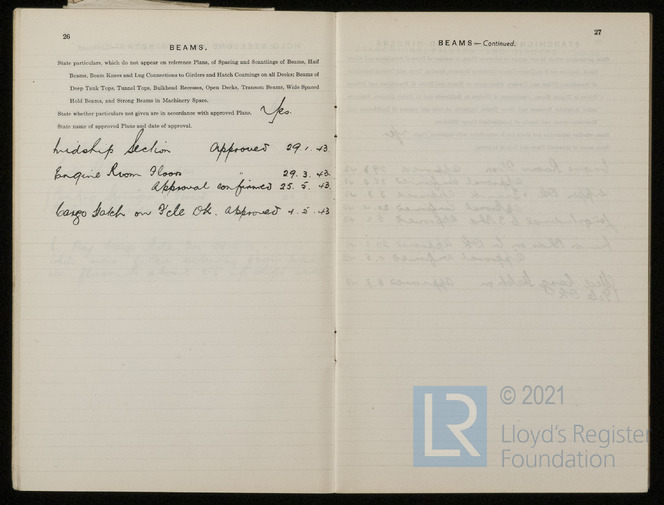 26
BEAMS.
State particulars, which do not appear on reference Plans, of Spacing and Scantlings of Beams, Half
Beams, Beam Knees and Lug Connections to Girders and Hatch Coamings on all Decks; Beams of
Deep Tank Tops, Tunnel Tops, Bulkhead Recesses, Open Decks, Transom Beams, Wide Spaced
Hold Beams, and Strong Beams in Machinery Space.
State whether particulars not given are in accordance with approved Plans. Yes.
State name of approved Plans and date of approval.
Midship Section Approved 29.1.43
Engine Room Floor " 29.3.43
Approval confirmed 25.5.43
Cargo Hatch on F'cle Dk. Approved 4.5.43
27
BEAMS—Continued.
LR
© 2021
Lloyd's Register
Foundation